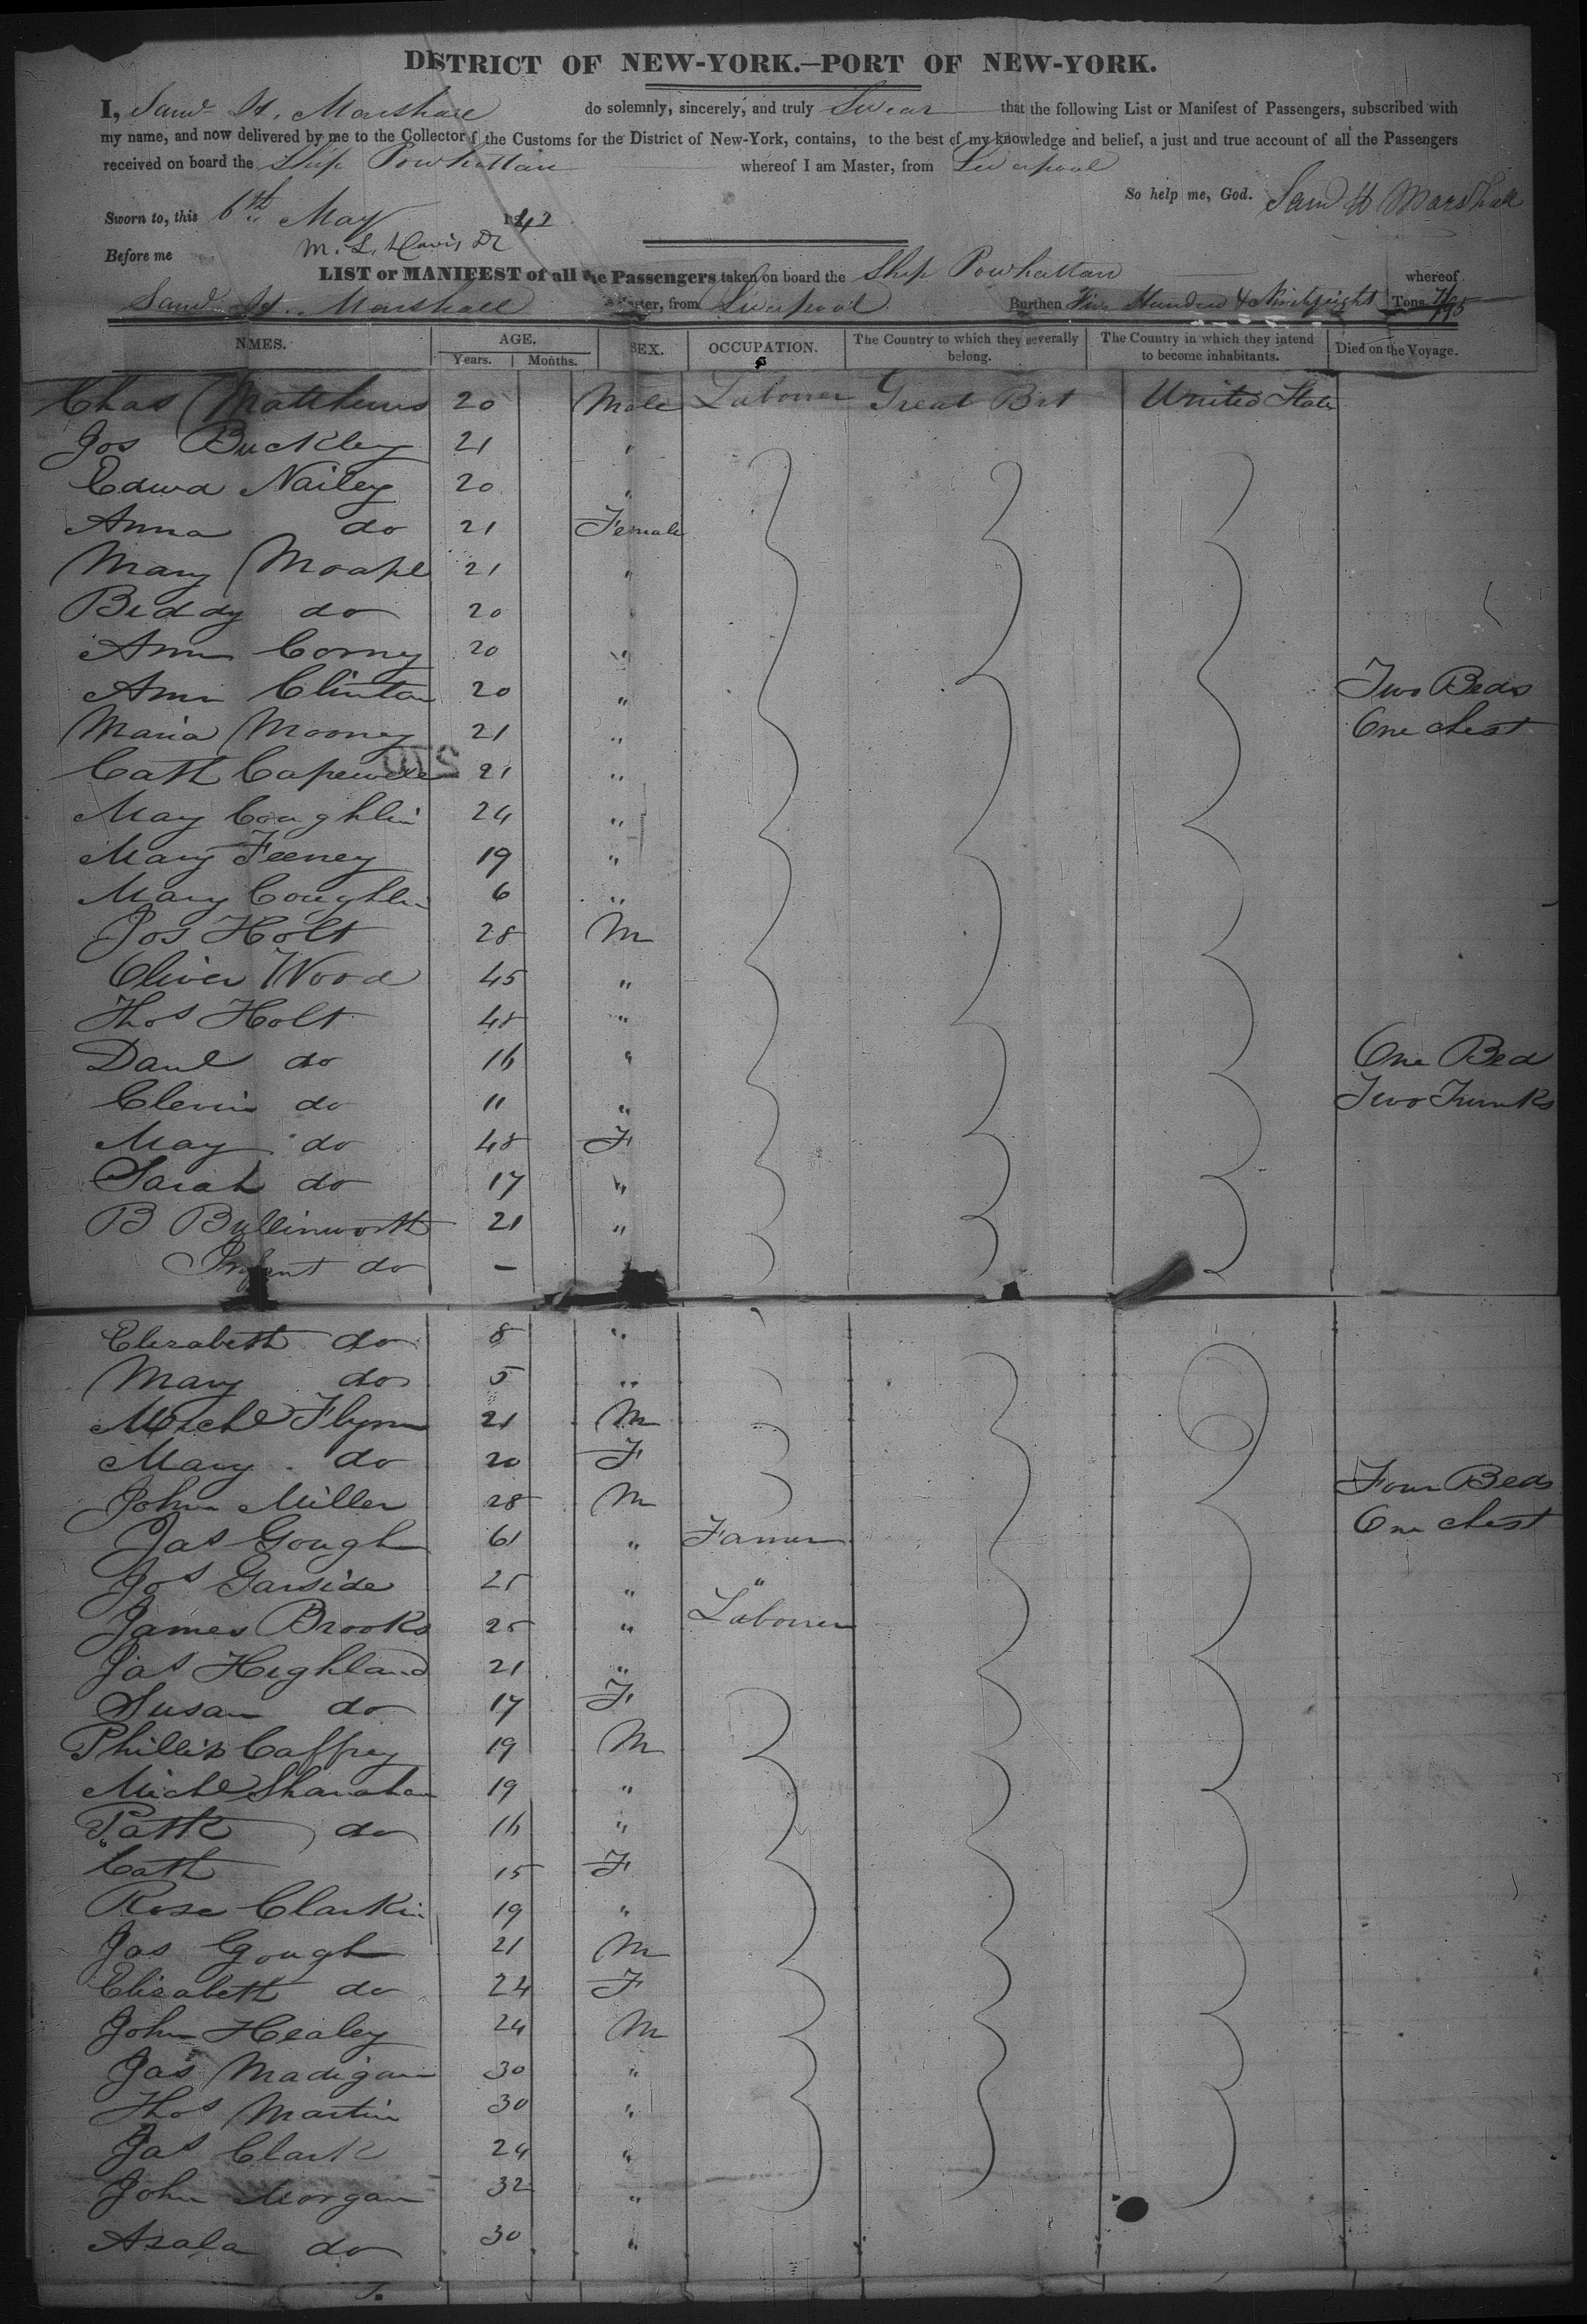 DISTRICT OF NEW-YORK.—PORT OF NEW-YORK.
I, Saml H. Marshall do solemnly, sincerely, and truly Swear that the following List or Manifest of Passengers, subscribed with
my name, and now delivered by me to the Collector of the Customs for the District of New-York, contains, to the best of my knowledge and belief, a just and true account of all the Passengers
received on board the Ship Powhattan whereof I am Master, from Liverpool
So help me, God. Saml H Marshall
Sworn to, this 6th May 1842
Before me M. L. Davis
LIST or MANIFEST of all the Passengers taken on board the Ship Powhattan whereof
Saml H. Marshall Master, from Liverpool Burthen Five Hundred & Ninety eight Tons. /95
NAMES. AGE. Years. Months. SEX. OCCUPATION. The Country to which they severally belong. The Country in which they intend to become inhabitants. Died on the Voyage.
Chas Matthews 20 Male Labourer Great Brt United State
Jos Buckley 21 "
Edwd Nailey 20 "
Anna do 21 Female
Mary 21 "
Biddy do 20 "
Ann Corny 20 "
Ann Clinton 20 " Two Beds
Maria Mooney 21 " One chest
Cath Capewell 21 "
May Coughlin 24 "
Mary Feeney 19 "
Mary Coughlin 6 "
Jos Holt 28 M
Oliver Wood 45 "
Thos Holt 48 "
Danl do 16 " One Bed
do 11 " Two Trunks
May do 48 F
Sarah do 17 "
B Bullinworth 21 "
Infant do —
Elizabeth do 8 "
Mary do 5 "
Michl Flynn 21 M
Mary do 20 F
John Miller 28 M Four Beds
Jas Gough 61 " Farmer One chest
Jos Garside 25 " "
James Brooks 25 " Labourer
Jas Highland 21 "
Susan do 17 F
Phillip Caffrey 19 M
Michl Shanahan 19 "
Patk do 16 "
Cath 15 F
Rose Clarkin 19 "
Jas Gough 21 M
Elizabeth do 24 F
John Healey 24 M
Jas Madigan 30 "
Thos Martin 30 "
Jas Clark 24 "
John Morgan 32 "
do 30 "